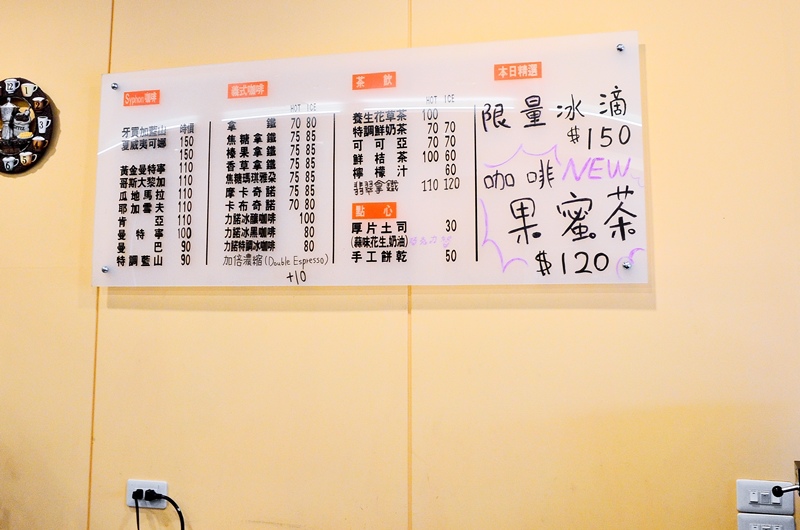 Syphon咖啡
牙買加藍山 時價
夏威夷可娜 150
150
黃金曼特寧 110
哥斯大黎加 110
瓜地馬拉 110
耶加雪夫 110
肯亞 110
曼特寧 100
曼巴 90
特調藍山 90
義式咖啡
HOT ICE
拿鐵 70 80
焦糖拿鐵 75 85
榛果拿鐵 75 85
香草拿鐵 75 85
焦糖瑪琪雅朵 75 85
摩卡奇諾 75 85
卡布奇諾 70 80
力諾冰釀咖啡 100
力諾冰黑咖啡 80
力諾特調冰咖啡 80
加倍濃縮(Double Espresso)
+10
茶飲
HOT ICE
養生花草茶 100
特調鮮奶茶 70 70
可可亞 70 70
鮮桔茶 100 60
檸檬汁 60
翡翠拿鐵 110 120
點心
厚片土司 30
(蒜味花生.奶油)
手工餅乾 50
本日精選
限量冰滴
$150
咖啡 NEW
果蜜茶
$120